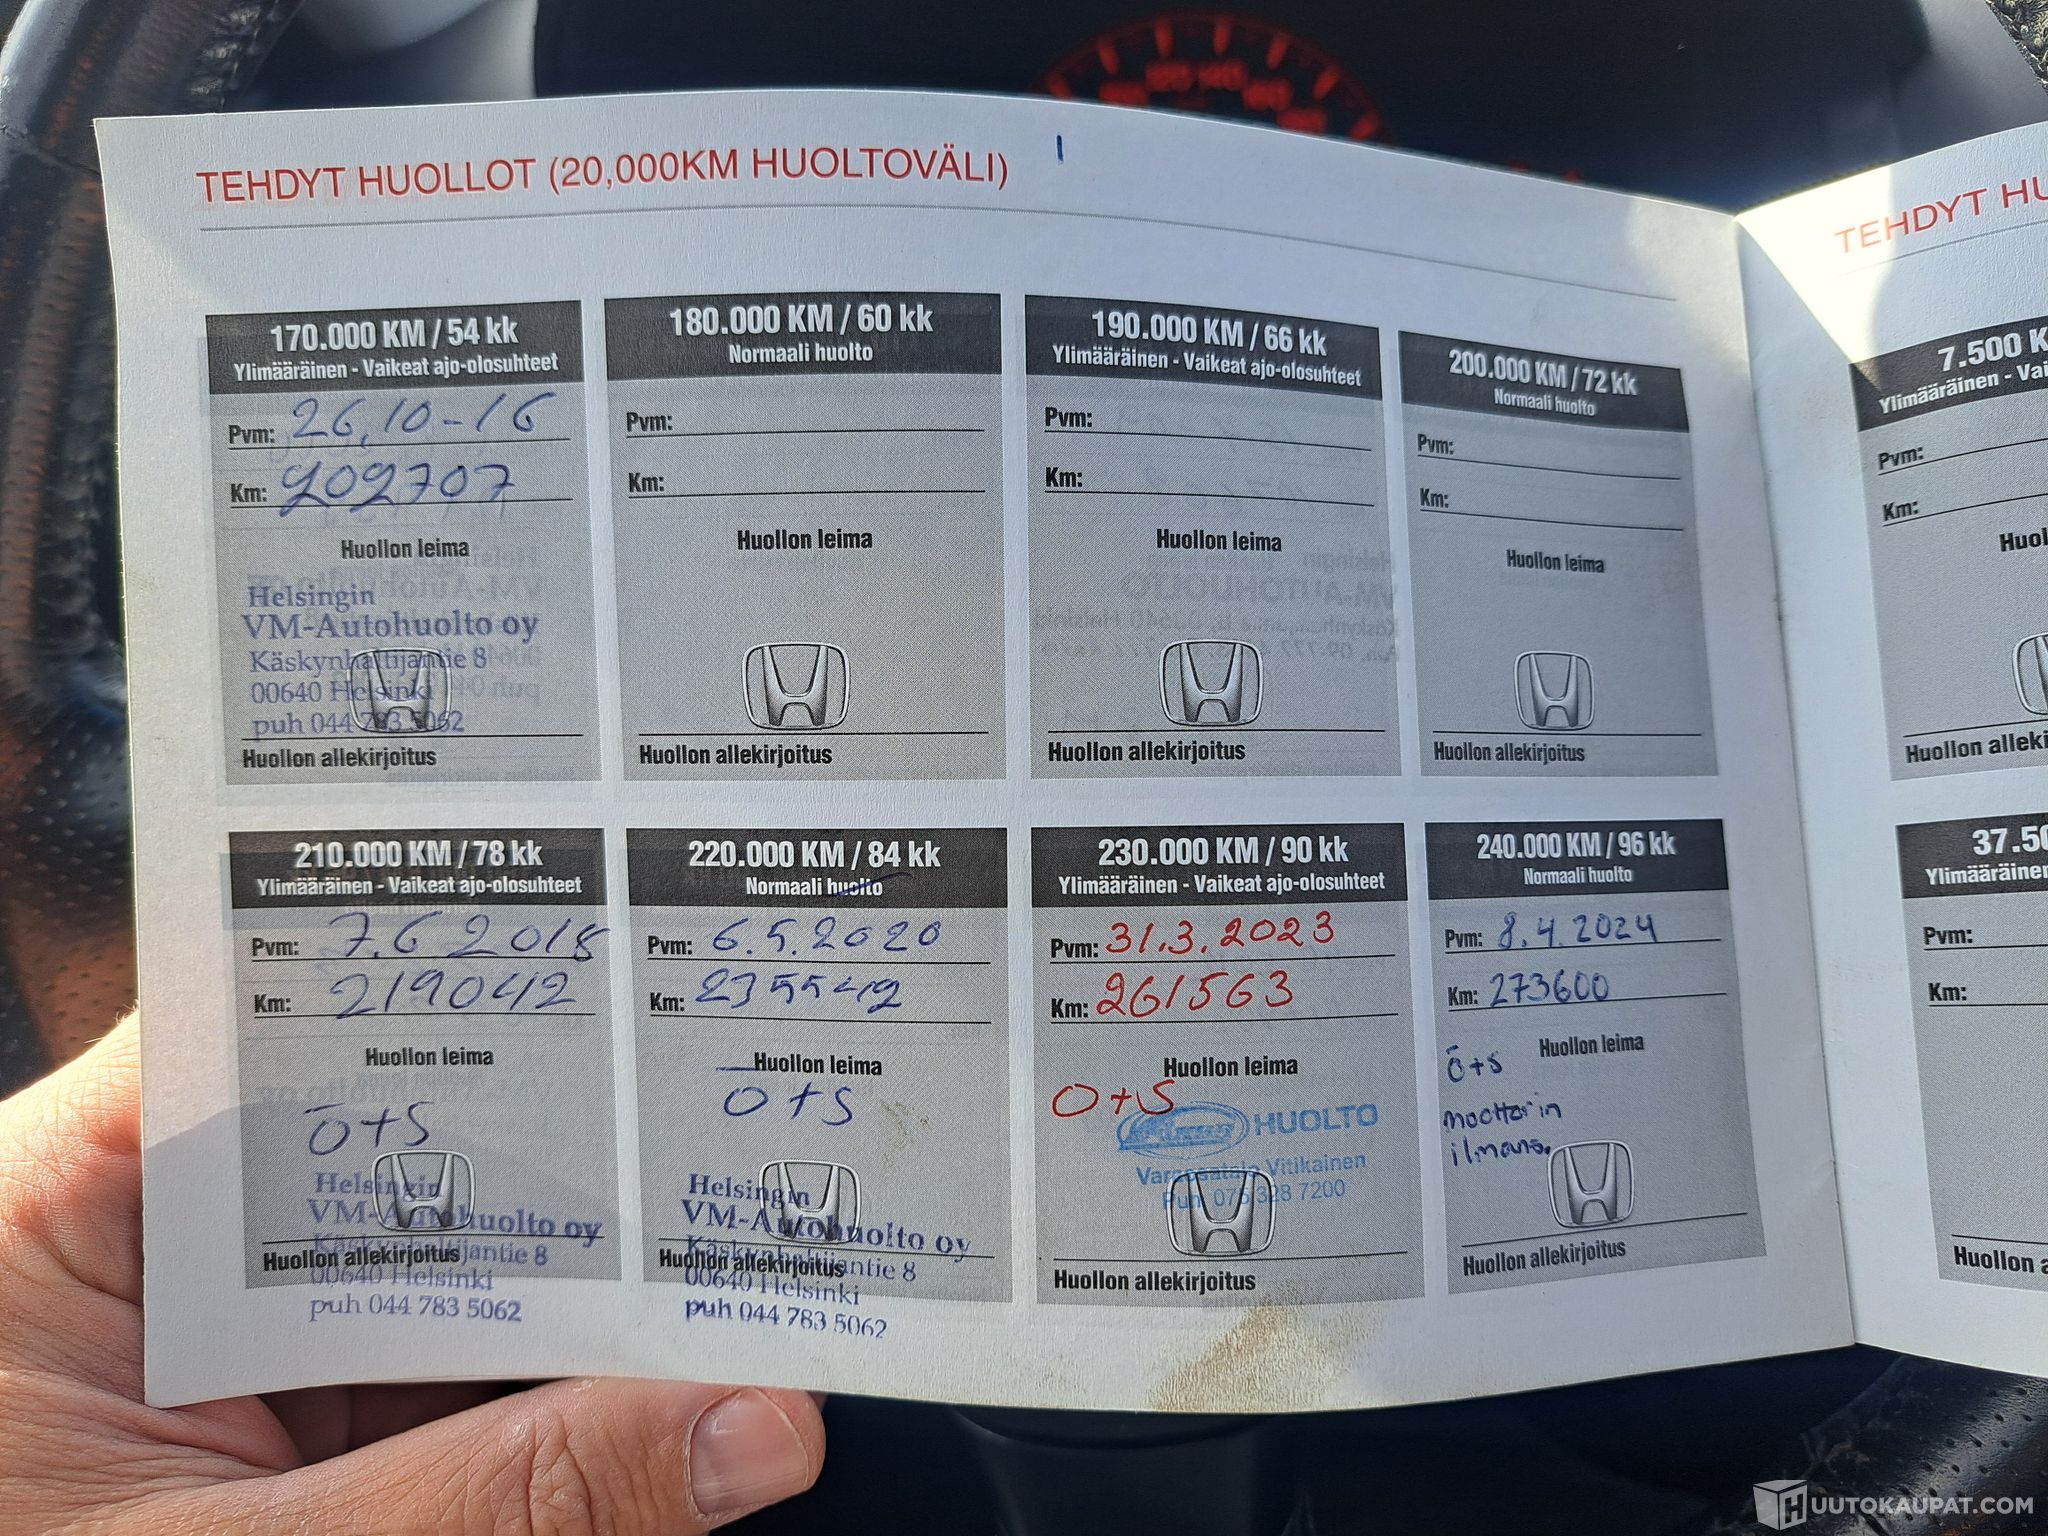 TEHDYT HUOLLOT (20,000KM HUOLTOVÄLI)
170.000 KM / 54 kk
Ylimääräinen - Vaikeat ajo-olosuhteet
Pvm: 26.10-16
Km: 202707
Huollon leima
Helsingin
VM-Autohuolto oy
Käskynhaltijantie 8
00640 Helsinki
puh 044 783 5062
Huollon allekirjoitus
180.000 KM / 60 kk
Normaali huolto
Pvm:
Km:
Huollon leima
Huollon allekirjoitus
190.000 KM / 66 kk
Ylimääräinen - Vaikeat ajo-olosuhteet
Pvm:
Km:
Huollon leima
Huollon allekirjoitus
200.000 KM / 72 kk
Normaali huolto
Pvm:
Km:
Huollon leima
Huollon allekirjoitus
210.000 KM / 78 kk
Ylimääräinen - Vaikeat ajo-olosuhteet
Pvm: 7.6 2018
Km: 219042
Huollon leima
Ö+S
Helsingin
VM-Autohuolto oy
Käskynhaltijantie 8
Huollon allekirjoitus
00640 Helsinki
puh 044 783 5062
220.000 KM / 84 kk
Normaali huolto
Pvm: 6.5.2020
Km:
Huollon leima
Ö+S
Helsingin
VM-Autohuolto oy
Käskynhaltijantie 8
Huollon allekirjoitus
00640 Helsinki
puh 044 783 5062
230.000 KM / 90 kk
Ylimääräinen - Vaikeat ajo-olosuhteet
Pvm: 31.3.2023
Km: 261563
Huollon leima
O+S
HUOLTO
Vitikainen
Puh. 075 328 7200
Huollon allekirjoitus
240.000 KM / 96 kk
Normaali huolto
Pvm: 8.4.2024
Km: 273600
Huollon leima
ö+s
moottorin
ilmans.
Huollon allekirjoitus
TEHDYT HU
7.500 K
Ylimääräinen - Vai
Pvm:
Km:
Huol
Huollon alleki
37.50
Ylimääräinen
Pvm:
Km:
Huollon a
HUUTOKAUPAT.COM